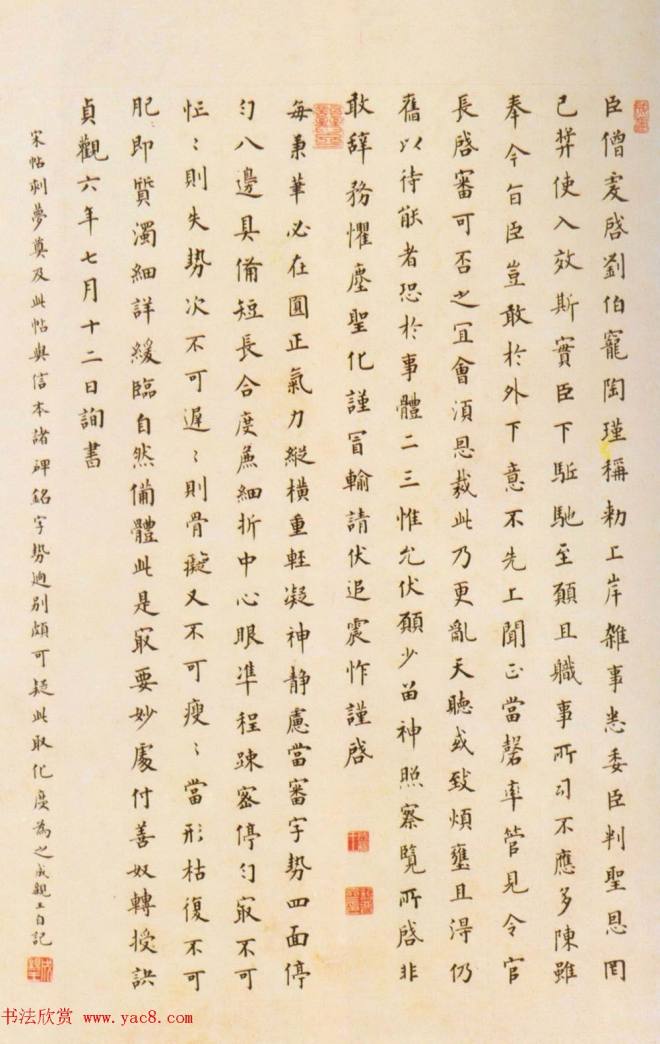 臣僧虔啓劉伯寵陶瑾稱勑上岸雜事悉委臣判聖恩罔
已弉使入效斯實臣下駈馳至願且職事所司不應多陳雖
奉今旨臣豈敢於外下意不先上聞正當罄率管見令官
長啓審可否之冝會湏恩裁此乃更亂天聽或致煩壅且淂仍
舊以待能者恐於事體二三惟允伏願少留神照察覽所啓非
敢辞務懼塵聖化謹冒輸請伏追震怍謹啓
每秉筆必在圓正氣力縱橫重軽凝神静慮當審字勢四面停
勻八邊具備短長合度麄細折中心眼準程踈密停勻㝡不可
忙〻則失勢次不可遲〻則骨癡又不可瘦〻當形枯復不可
肥即質濁細詳緩臨自然備體此是㝡要妙處付善奴轉授訣
貞觀六年七月十二日詢書
宋帖刺夢奠及此帖與信本諸碑銘字勢迥别頗可疑此取化度為之成親王自記
书法欣赏 www.yac8.com